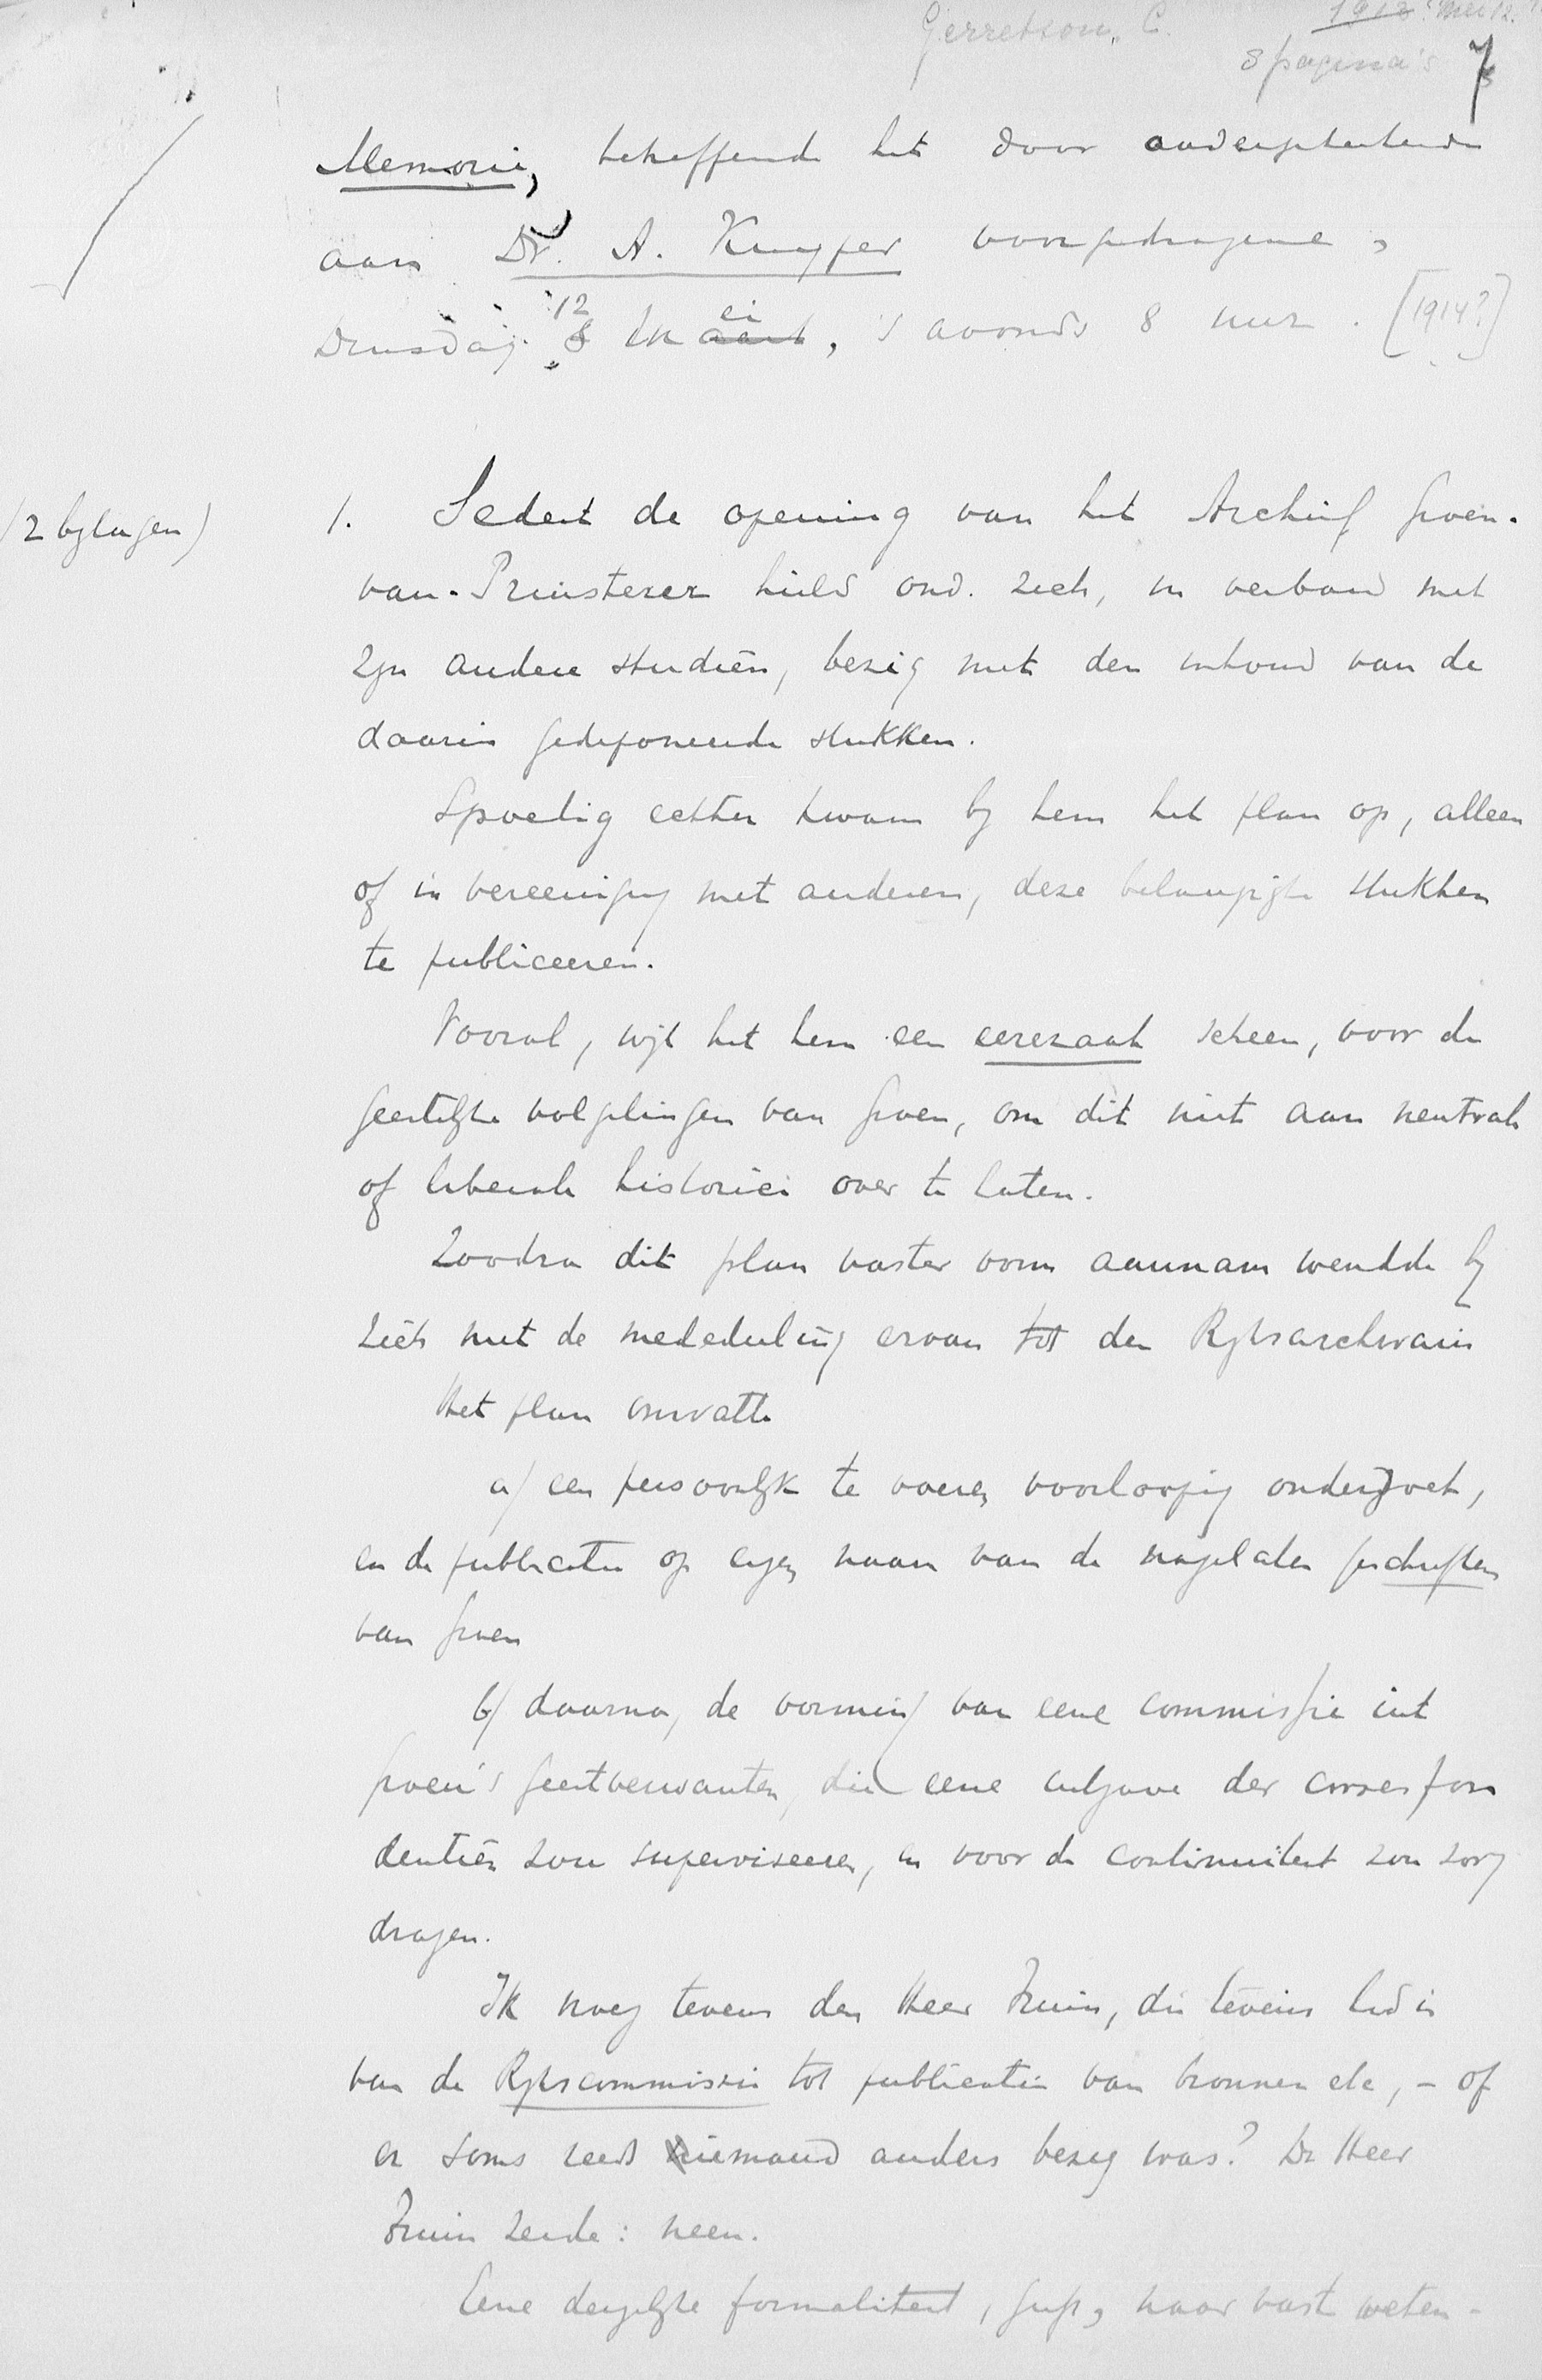 Gerretson, C. 1913? Mei 12.
8 pagina's 7
Memorie, betreffende het door ondergeteekende
aan Dr. A. Kuyper voorgedragene,
Dinsdag 8 12 Maart ei, 's avonds 8 uur. [1914?]
(2 bylagen)
1. Sedert de opening van het Archief Groen-
van-Prinsterer hield ond. zich, in verband met
zyn andere studiën, bezig met den inhoud van de
daarin gedeponeerde stukken.
Spoedig echter kwam by hem het plan op, alleen
of in vereeniging met anderen, deze belangrijke stukken
te publiceeren.
Vooral, wijl het hem een eerezaak scheen, voor de
geestelijke volgelingen van Groen, om dit niet aan neutrale
of liberale historici over te laten.
Zoodra dit plan vaster vorm aannam wendde hy
zich met de mededeeling ervan tot den Ryksarchivaris
Het plan omvatte
a/ een persoonlyk te voeren voorloopig onderzoek,
en de publicatie op eigen naam van de nagelaten geschriften
van Groen
b/ daarna, de vorming van eene commissie uit
Groen's geestverwanten, die eene uitgave der correspon
dentiën zou superviseeren, en voor de continuiteit zou zorg
dragen.
Ik vroeg tevens den Heer Fruin, die tevens lid is
van de Rykscommissie tot publicatie van bronnen etc, - of
er soms reeds niemand anders bezig was? De Heer
Fruin zeide: neen.
Eene dergelyke formaliteit, naar vast weten-